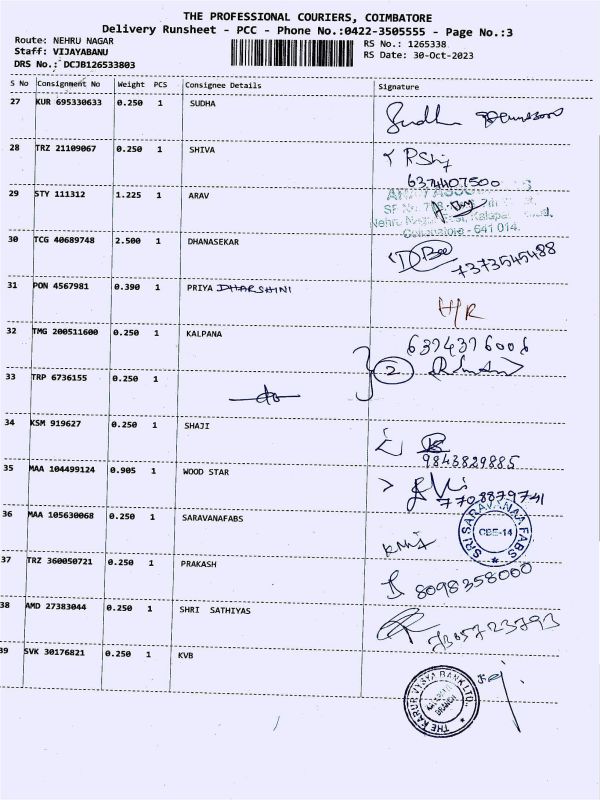 THE PROFESSIONAL COURIERS, COIMBATORE
Delivery Runsheet - PCC - Phone No.:0422-3505555 - Page No.:3
Route: NEHRU NAGAR
RS No.: 1265338
Staff: VIJAYABANU
RS Date: 30-Oct-2023
DRS No.: DCJB126533803
S No Consignment No Weight PCS Consignee Details Signature
27 KUR 695330633 0.250 1 SUDHA Sudha
28 TRZ 21109067 0.250 1 SHIVA
6374407500
29 STY 111312 1.225 1 ARAV
- 641 014.
30 TCG 40689748 2.500 1 DHANASEKAR
7373545488
31 PON 4567981 0.390 1 PRIYA DHARSHINI
H/R
32 TMG 200511600 0.250 1 KALPANA
6374376006
33 TRP 6736155 0.250 1 2
34 KSM 919627 0.250 1 SHAJI
9843829885
35 MAA 104499124 0.905 1 WOOD STAR
7708879741
36 MAA 105630068 0.250 1 SARAVANAFABS
SRI SARAVANAA FABS
CBE-14
37 TRZ 360050721 0.250 1 PRAKASH
8098358000
38 AMD 27383044 0.250 1 SHRI SATHIYAS
7305723793
39 SVK 30176821 0.250 1 KVB
THE KARUR VYSYA BANK LTD.
BRANCH